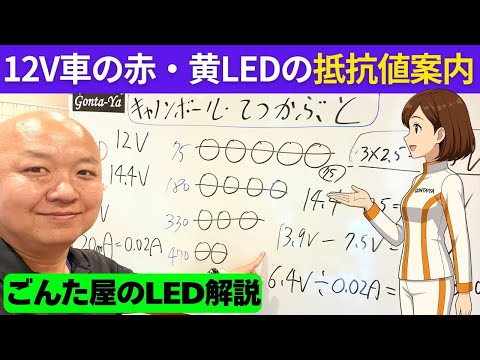 12V車の赤・黄LEDの抵抗値案内
Gonta-Ya
キャノンボール・てつかぶと
12V
14.4V
V
20mA=0.02A
75
180
330
470
3×2.5
75
14.4
5=
13.9V－7.5V=
6.4V÷0.02A=
GONTAYA
ごんた屋のLED解説